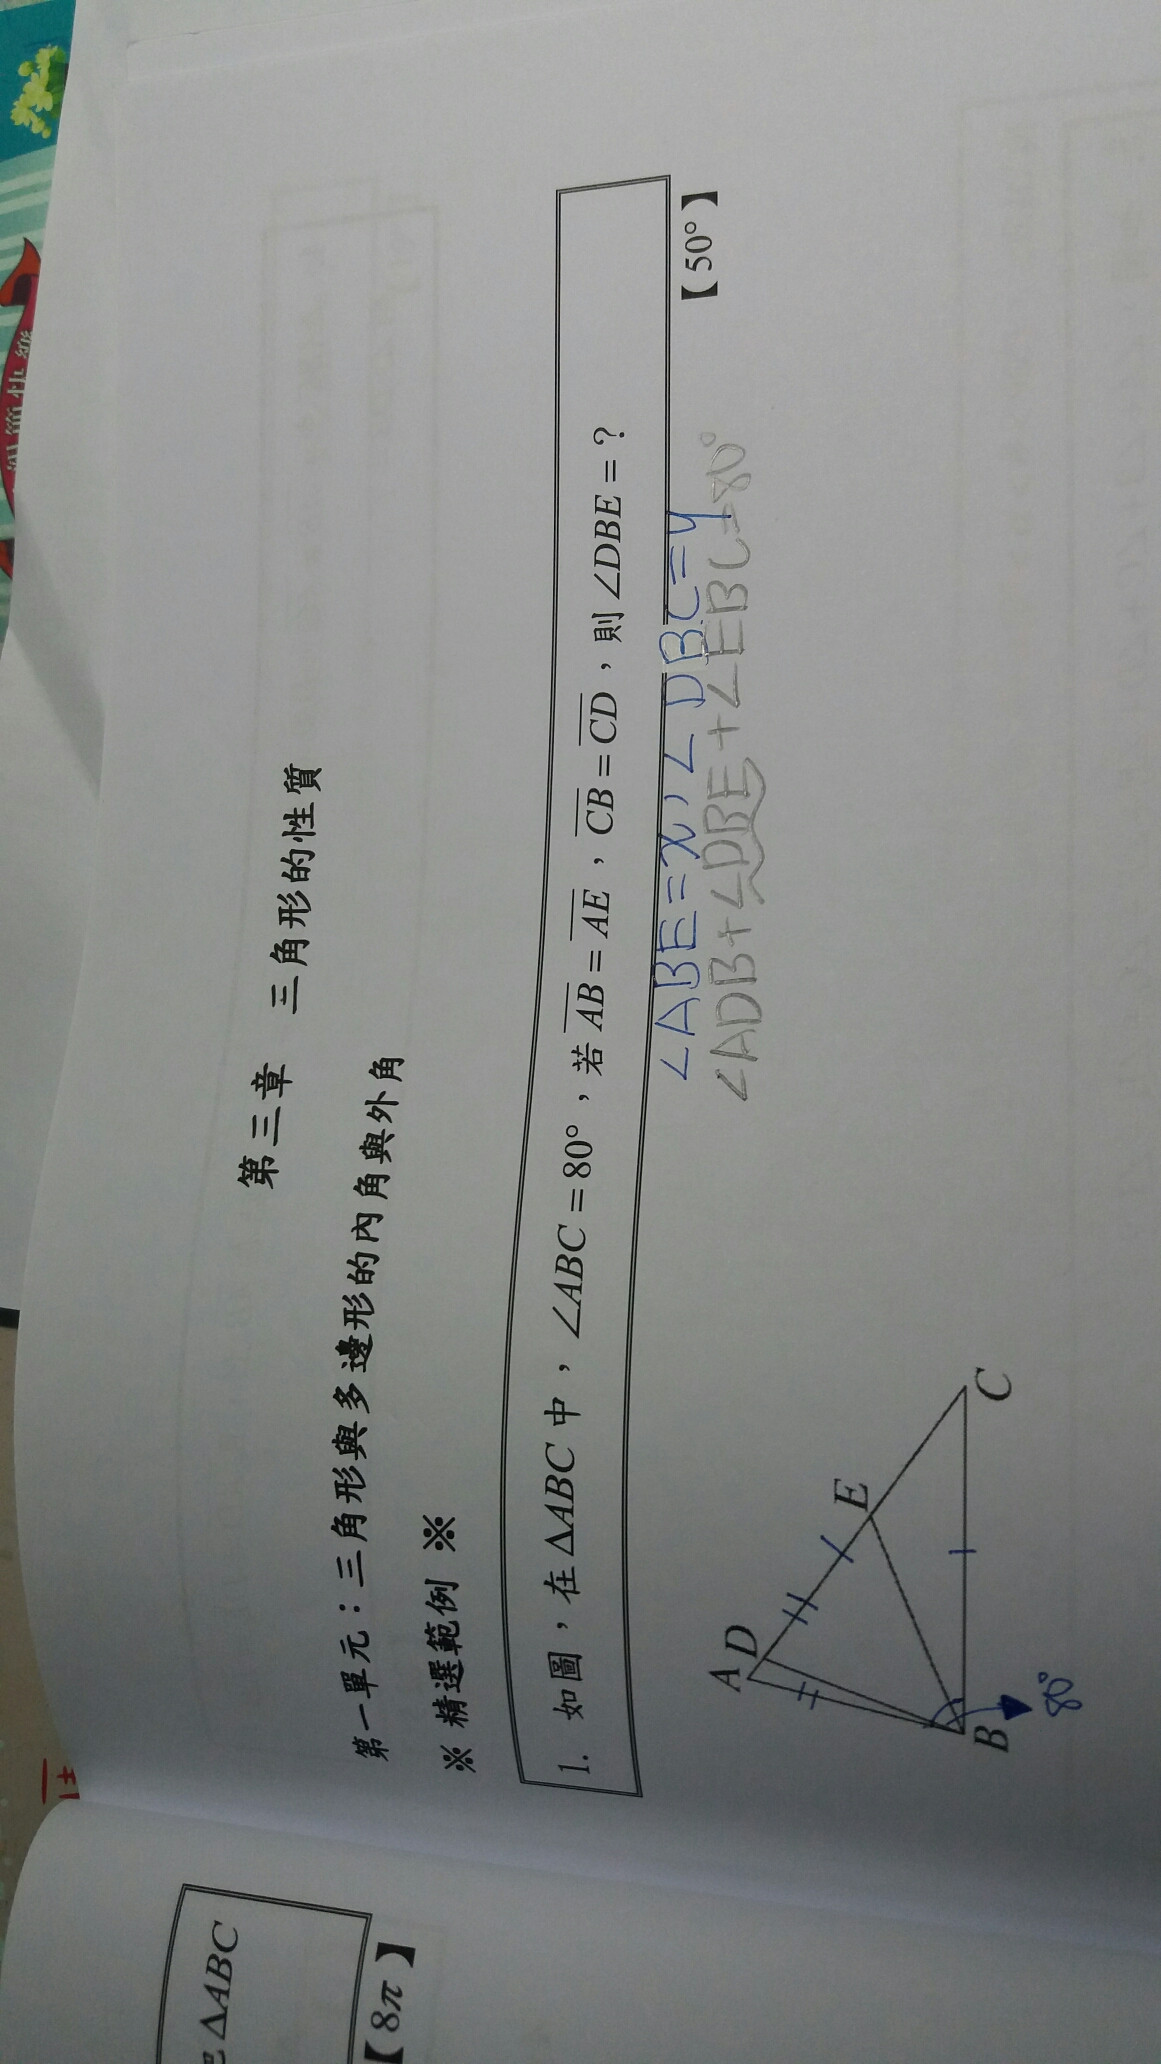 第三章 三角形的性質
第一單元：三角形與多邊形的內角與外角
※ 精選範例 ※
1. 如圖，在ΔABC中，∠ABC=80°，若AB=AE，CB=CD，則∠DBE=？
【50°】
∠ABE=x，∠DBC=y
∠ADB+∠DBE+∠EBC=80°
A
D
E
B
C
80°
ΔABC
【8π】